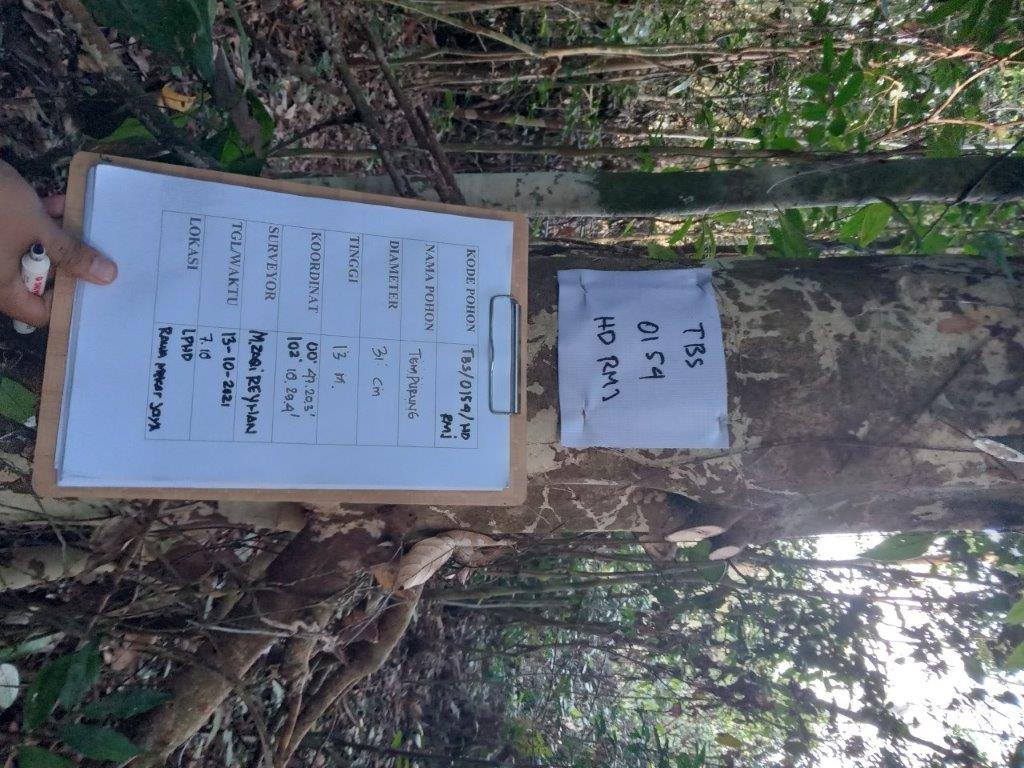 TBS
0159
HD RMJ
KODE POHON TBS/0159/HD
RMJ
NAMA POHON TEMPURUNG
DIAMETER 31 cm
TINGGI 13 M.
KOORDINAT 00° 47.203'
102° 18.294'
SURVEYOR M.ZAQI REYHAN
TGL/WAKTU 13-10-2021
7.10
LOKASI LPHD
RAWA MEKAR JAYA